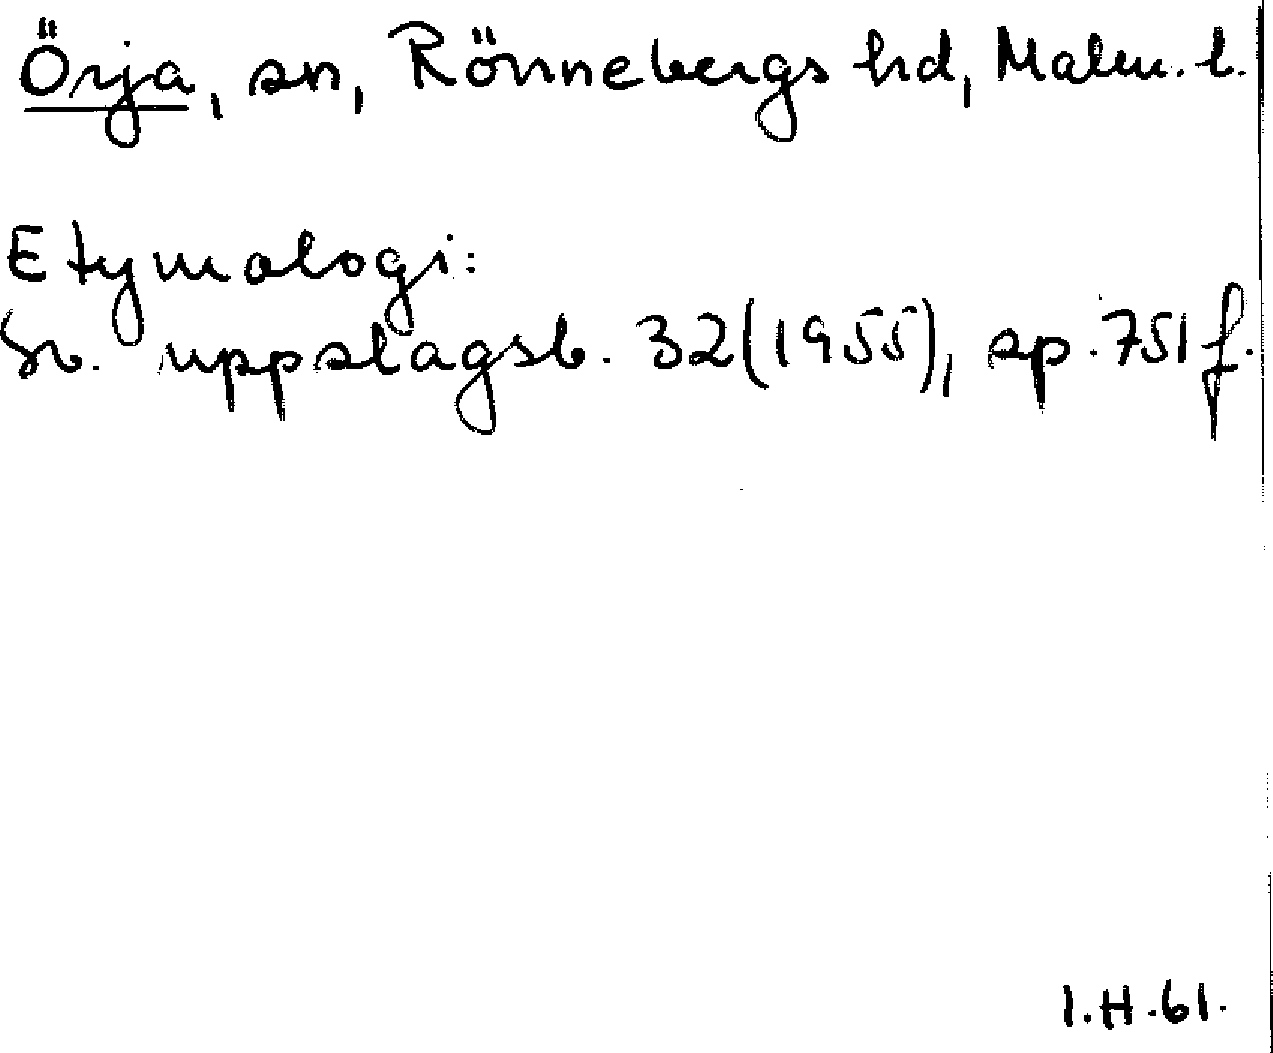 Örja, sn, Rönnebergs hd, Malm. l.
Etymologi:
Sv. uppslagsb. 32(1955), sp. 751 f.
I.H.61.